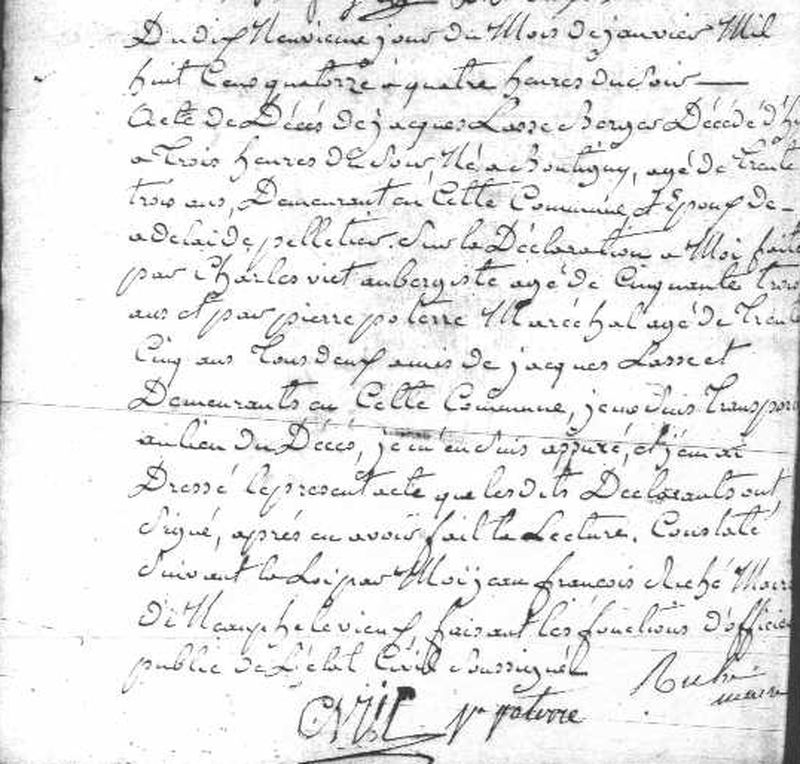 Du dix Neuvieme jour du Mois de janvier Mil
huit Cens quatorze a quatre heures du soir —
Acte de Décés de jacques Lasse Berger Décédé d'h
a Trois heures du soir, Né a Boutigny, agé de Trente
trois ans, Demeurant en Cette Commune, Epoux de -
adelaide pelletier. Sur la Déclaration a Moi faite
par Charles viet aubergiste agé de Cinquante trois
ans et par pierre poterre Maréchal agé de Trente
Cinq ans Tous deux amis de jacques Lasse et
Demeurants en Cette Commune, je me suis Transpor
au lieu du Décés, je m'en suis assuré, et j'en ai
Dressé le present acte que lesdits Declarants ont
Signé, aprés en avoir fait la Lecture. Constaté
Suivant la Loi par Moi jean françois Ruché Maire
De Nanphelevieux faisant les fonctions d'officier
public de L'état Civil Soussigné
Ruché
maire
CViet pre poterre